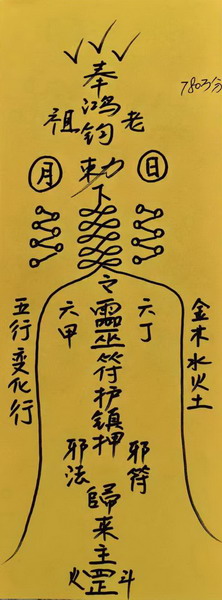 奉
鸿钧
祖 老
月 勅 日
下
令
六甲 靈巫符护镇押 六丁
五行变化行
金木水火土
邪法 邪符
歸来主罡
火 斗